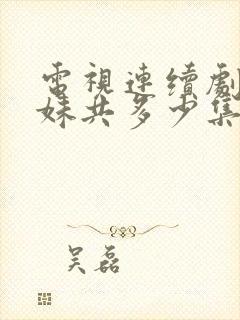 電視連續劇
妹共多少集
吴磊